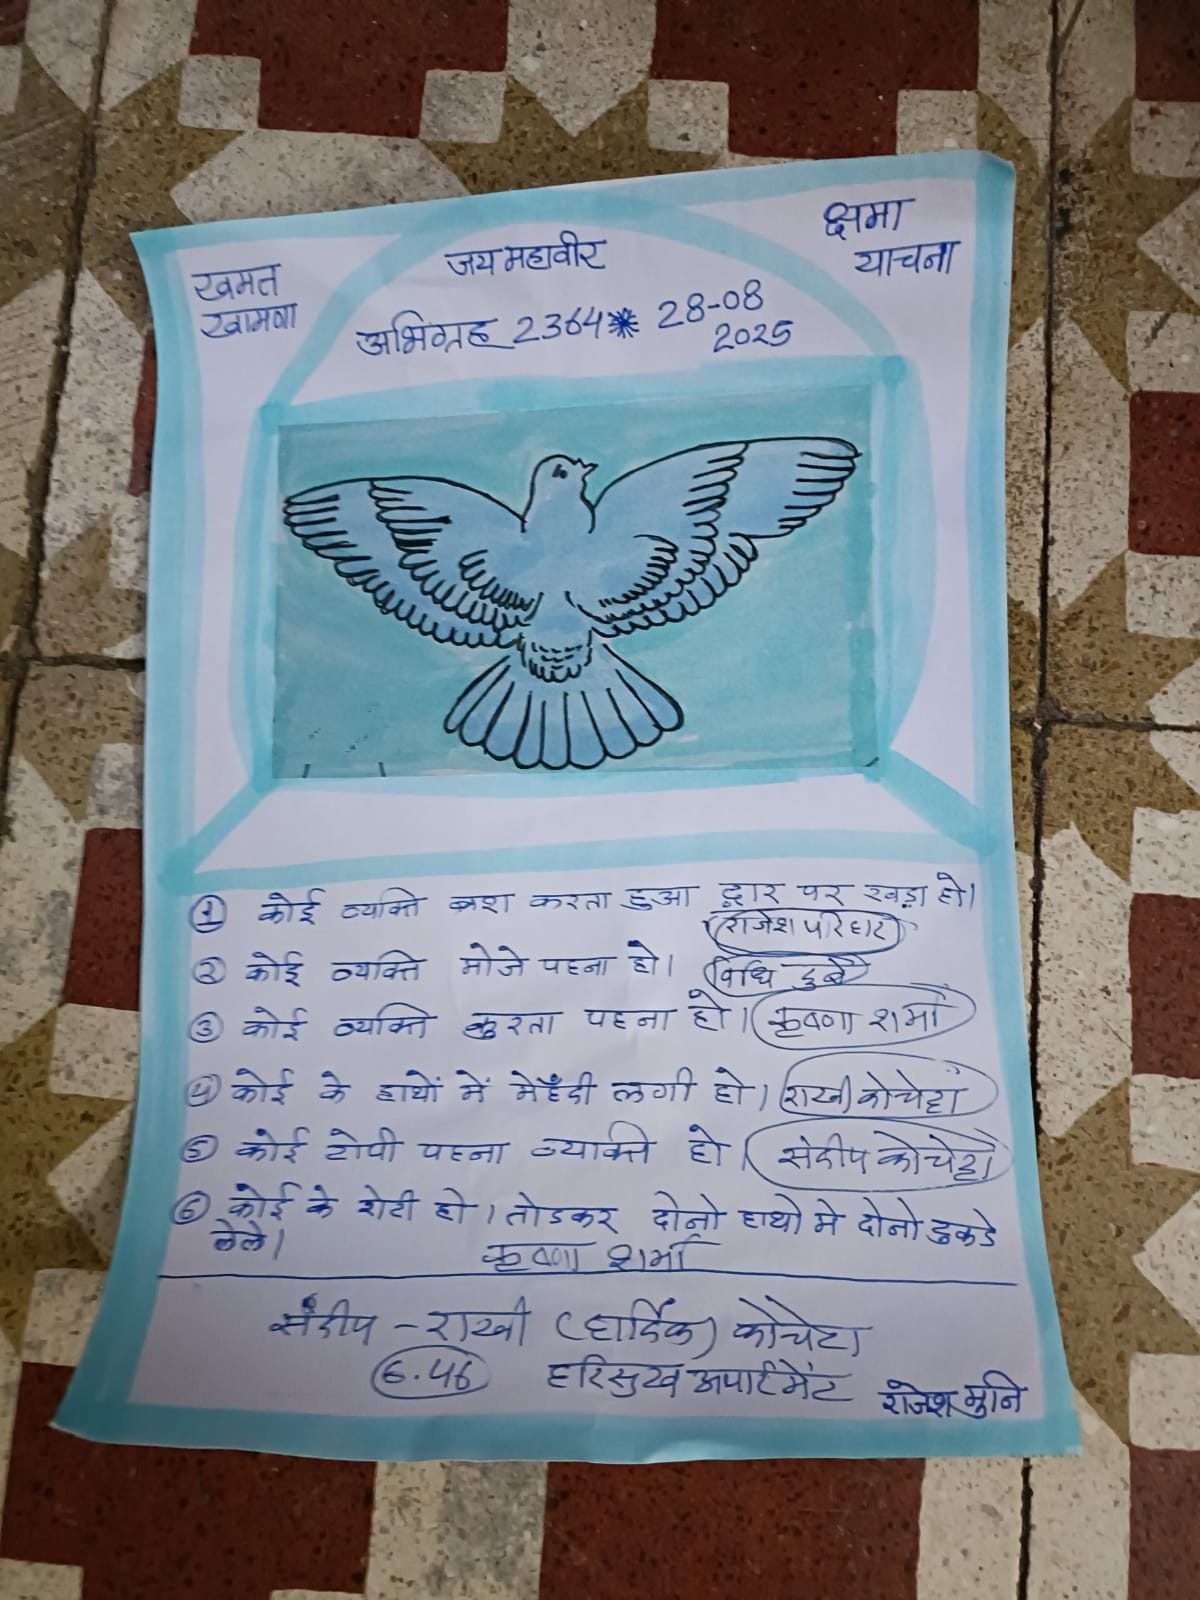 खमत
खामणा
जय महावीर
क्षमा
याचना
अभिग्रह 2364 * 28-08
2025
① कोई व्यक्ति ब्रश करता हुआ द्वार पर खड़ा हो।
राजेश परिहार
② कोई व्यक्ति मोजे पहना हो। विधि दुबे
③ कोई व्यक्ति कुरता पहना हो। कृष्णा शर्मा
④ कोई के हाथों में मेहँदी लगी हो। राखी कोचेट्टा
⑤ कोई टोपी पहना व्यक्ति हो। संदीप कोचेट्टा
⑥ कोई के रोटी हो। तोडकर दोनो हाथो मे दोनो टुकडे
लेले। कृष्णा शर्मा
संदीप - राखी (हार्दिक) कोचेटा
6.46 हरिसुख अपार्टमेंट राजेश मुनि